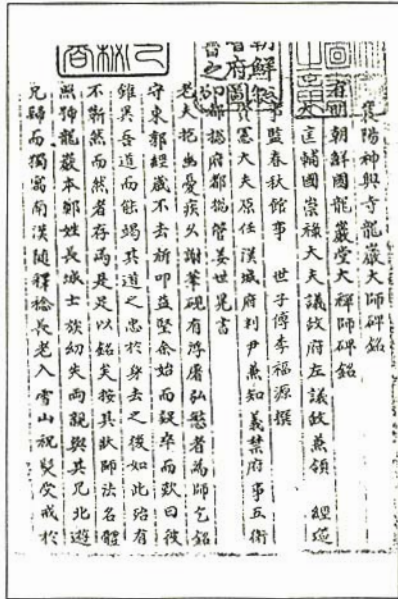 襄陽神興寺龍巖大師碑銘
有明朝鮮國龍巖堂大禪師碑銘
大匡輔國崇祿大夫議政府左議政兼領 經筵
事監春秋館事 世子傅李福源撰
資憲大夫原任漢城府判尹兼知義禁府事五衛
都摠府都摠管姜世晃書
老夫抱幽憂疾久謝筆硯有浮屠弘慜者為師乞銘
守東郭經歲不去祈叩益堅余始而疑卒而歎曰彼
雖異吾道而能竭其道之忠於身去之後如此殆有
不斬然而然者存焉是足以銘矣按其狀師法名體
照號龍巖本鄭姓長城士族幼失兩親與其兄北遊
兄歸而獨寓南漢隨釋稔長老入雪山祝髮受戒於